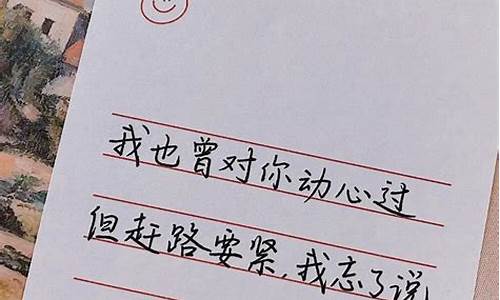 我也曾对你动心过
但赶路要紧,我忘了说